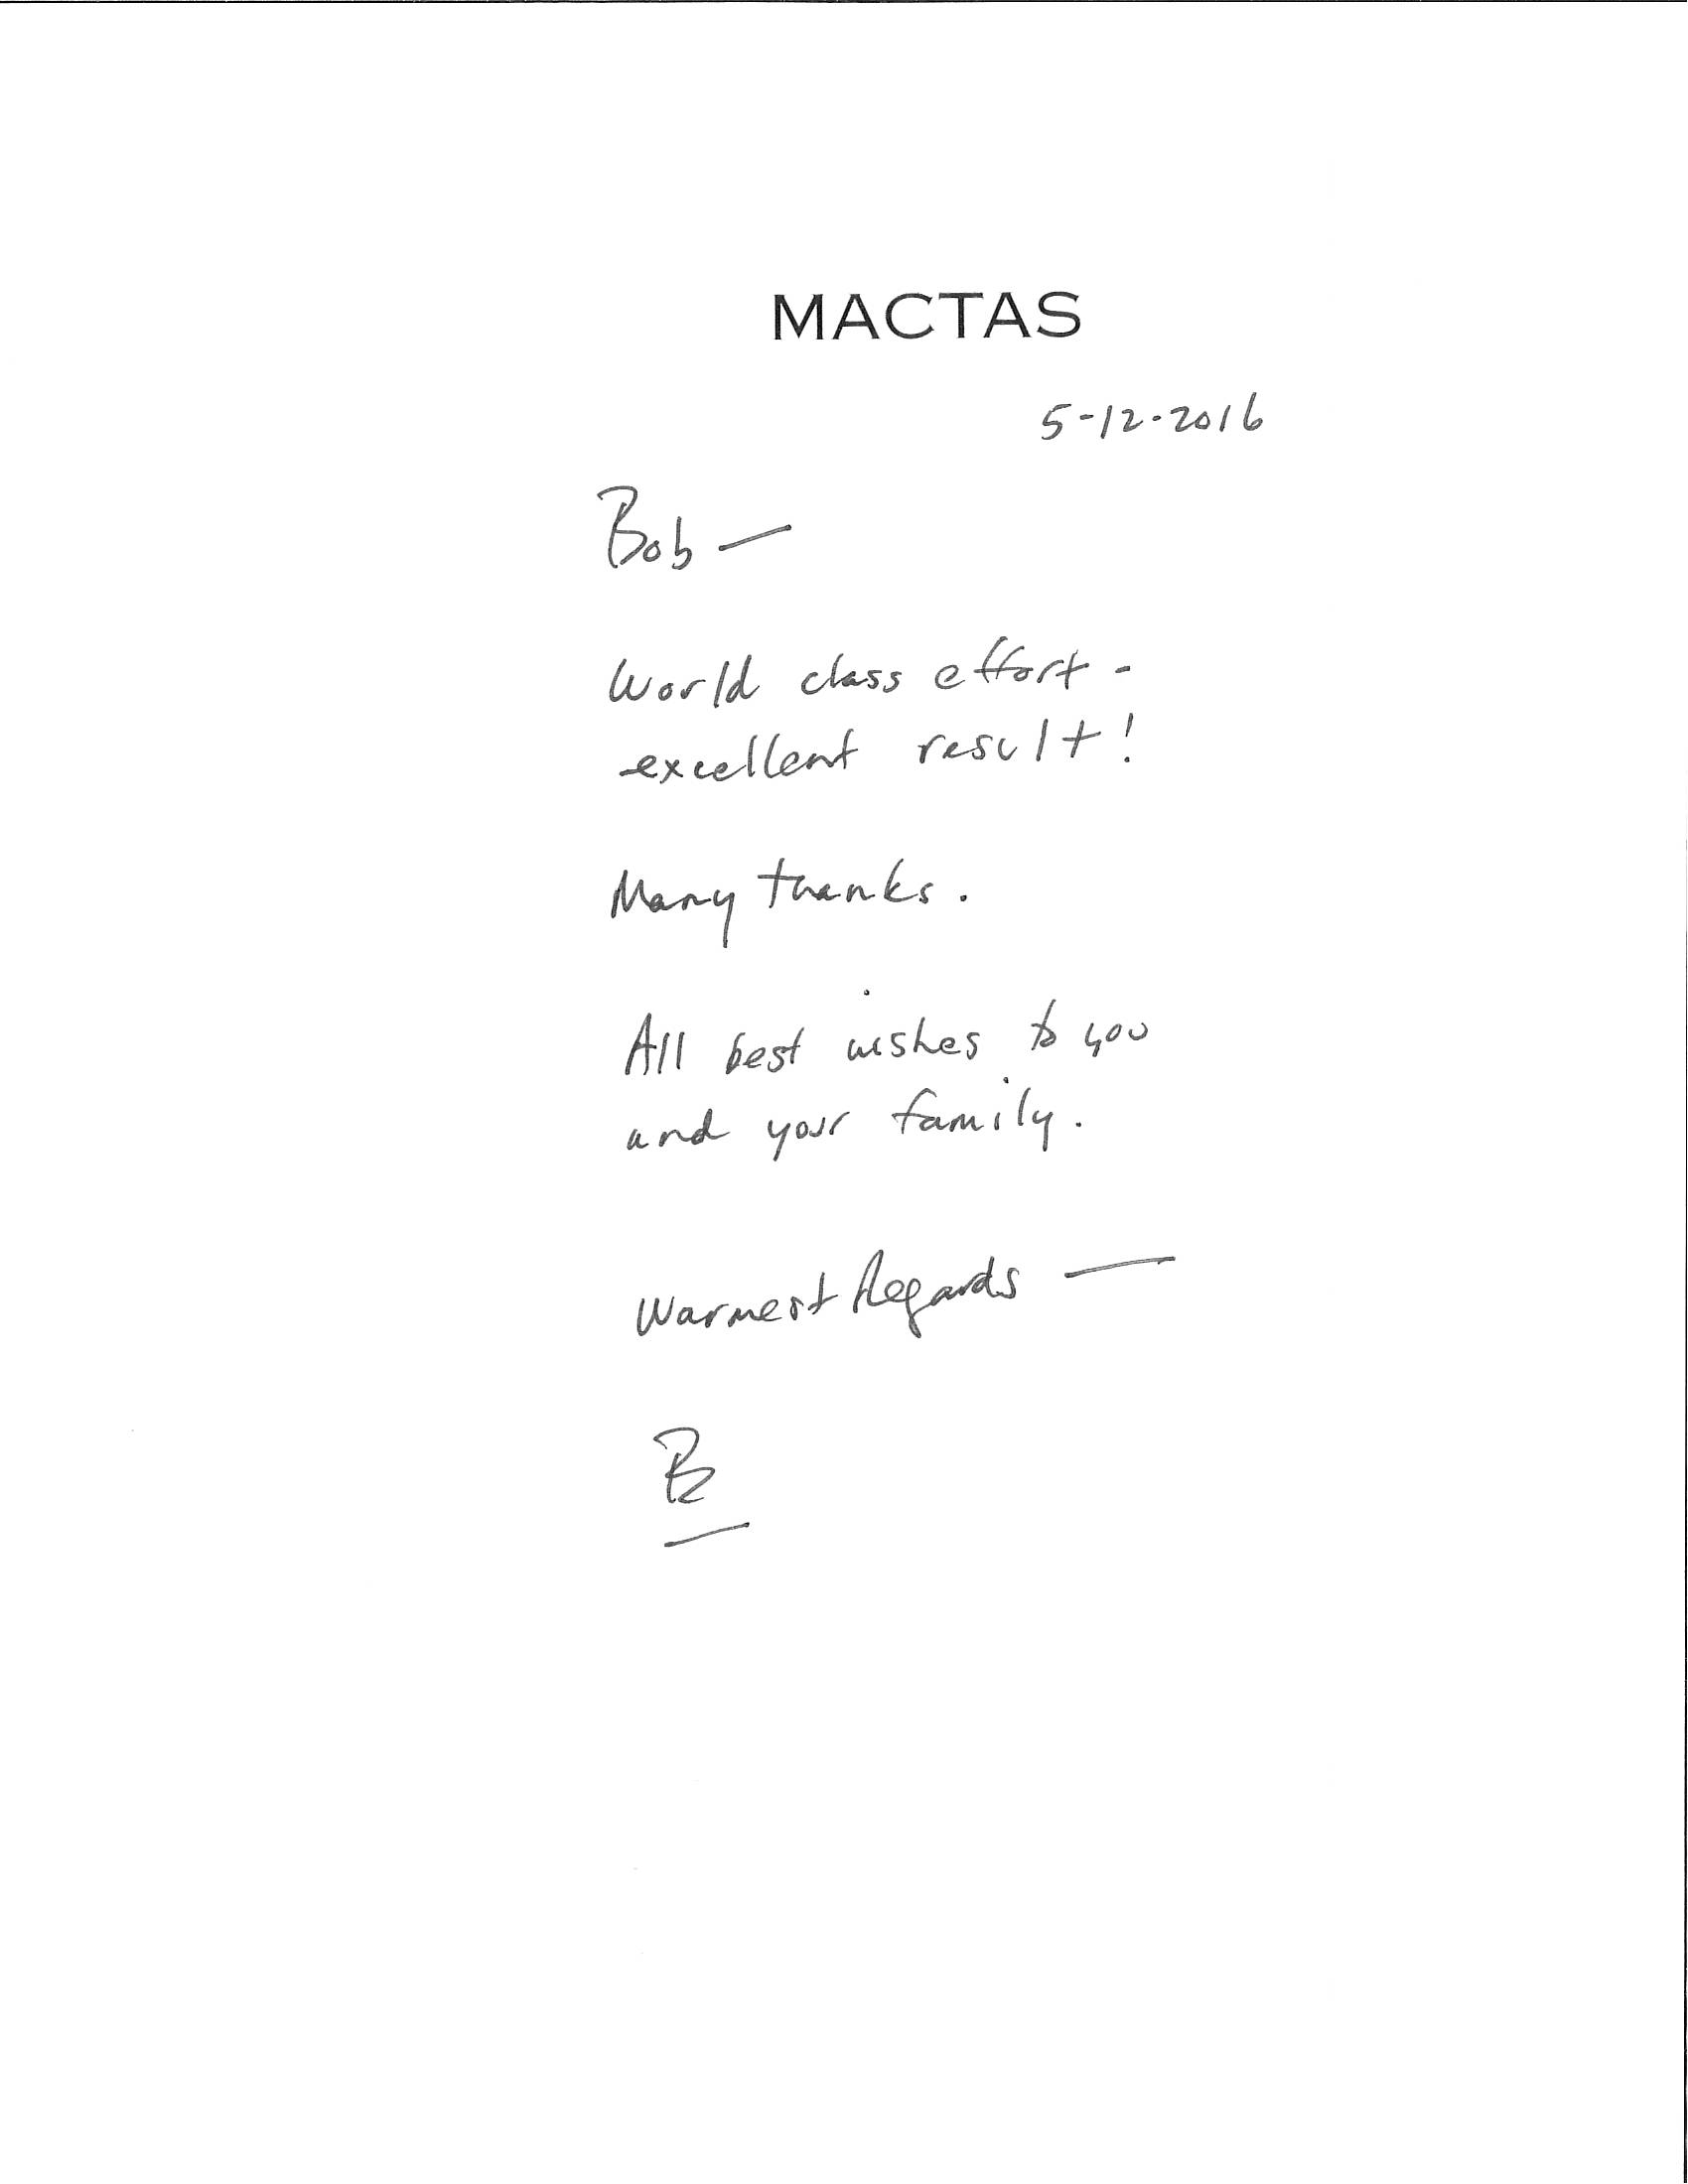 MACTAS
5-12-2016
Bob —
World class effort -
excellent result!
Many thanks.
All best wishes to you
and your family.
Warmest Regards —
B